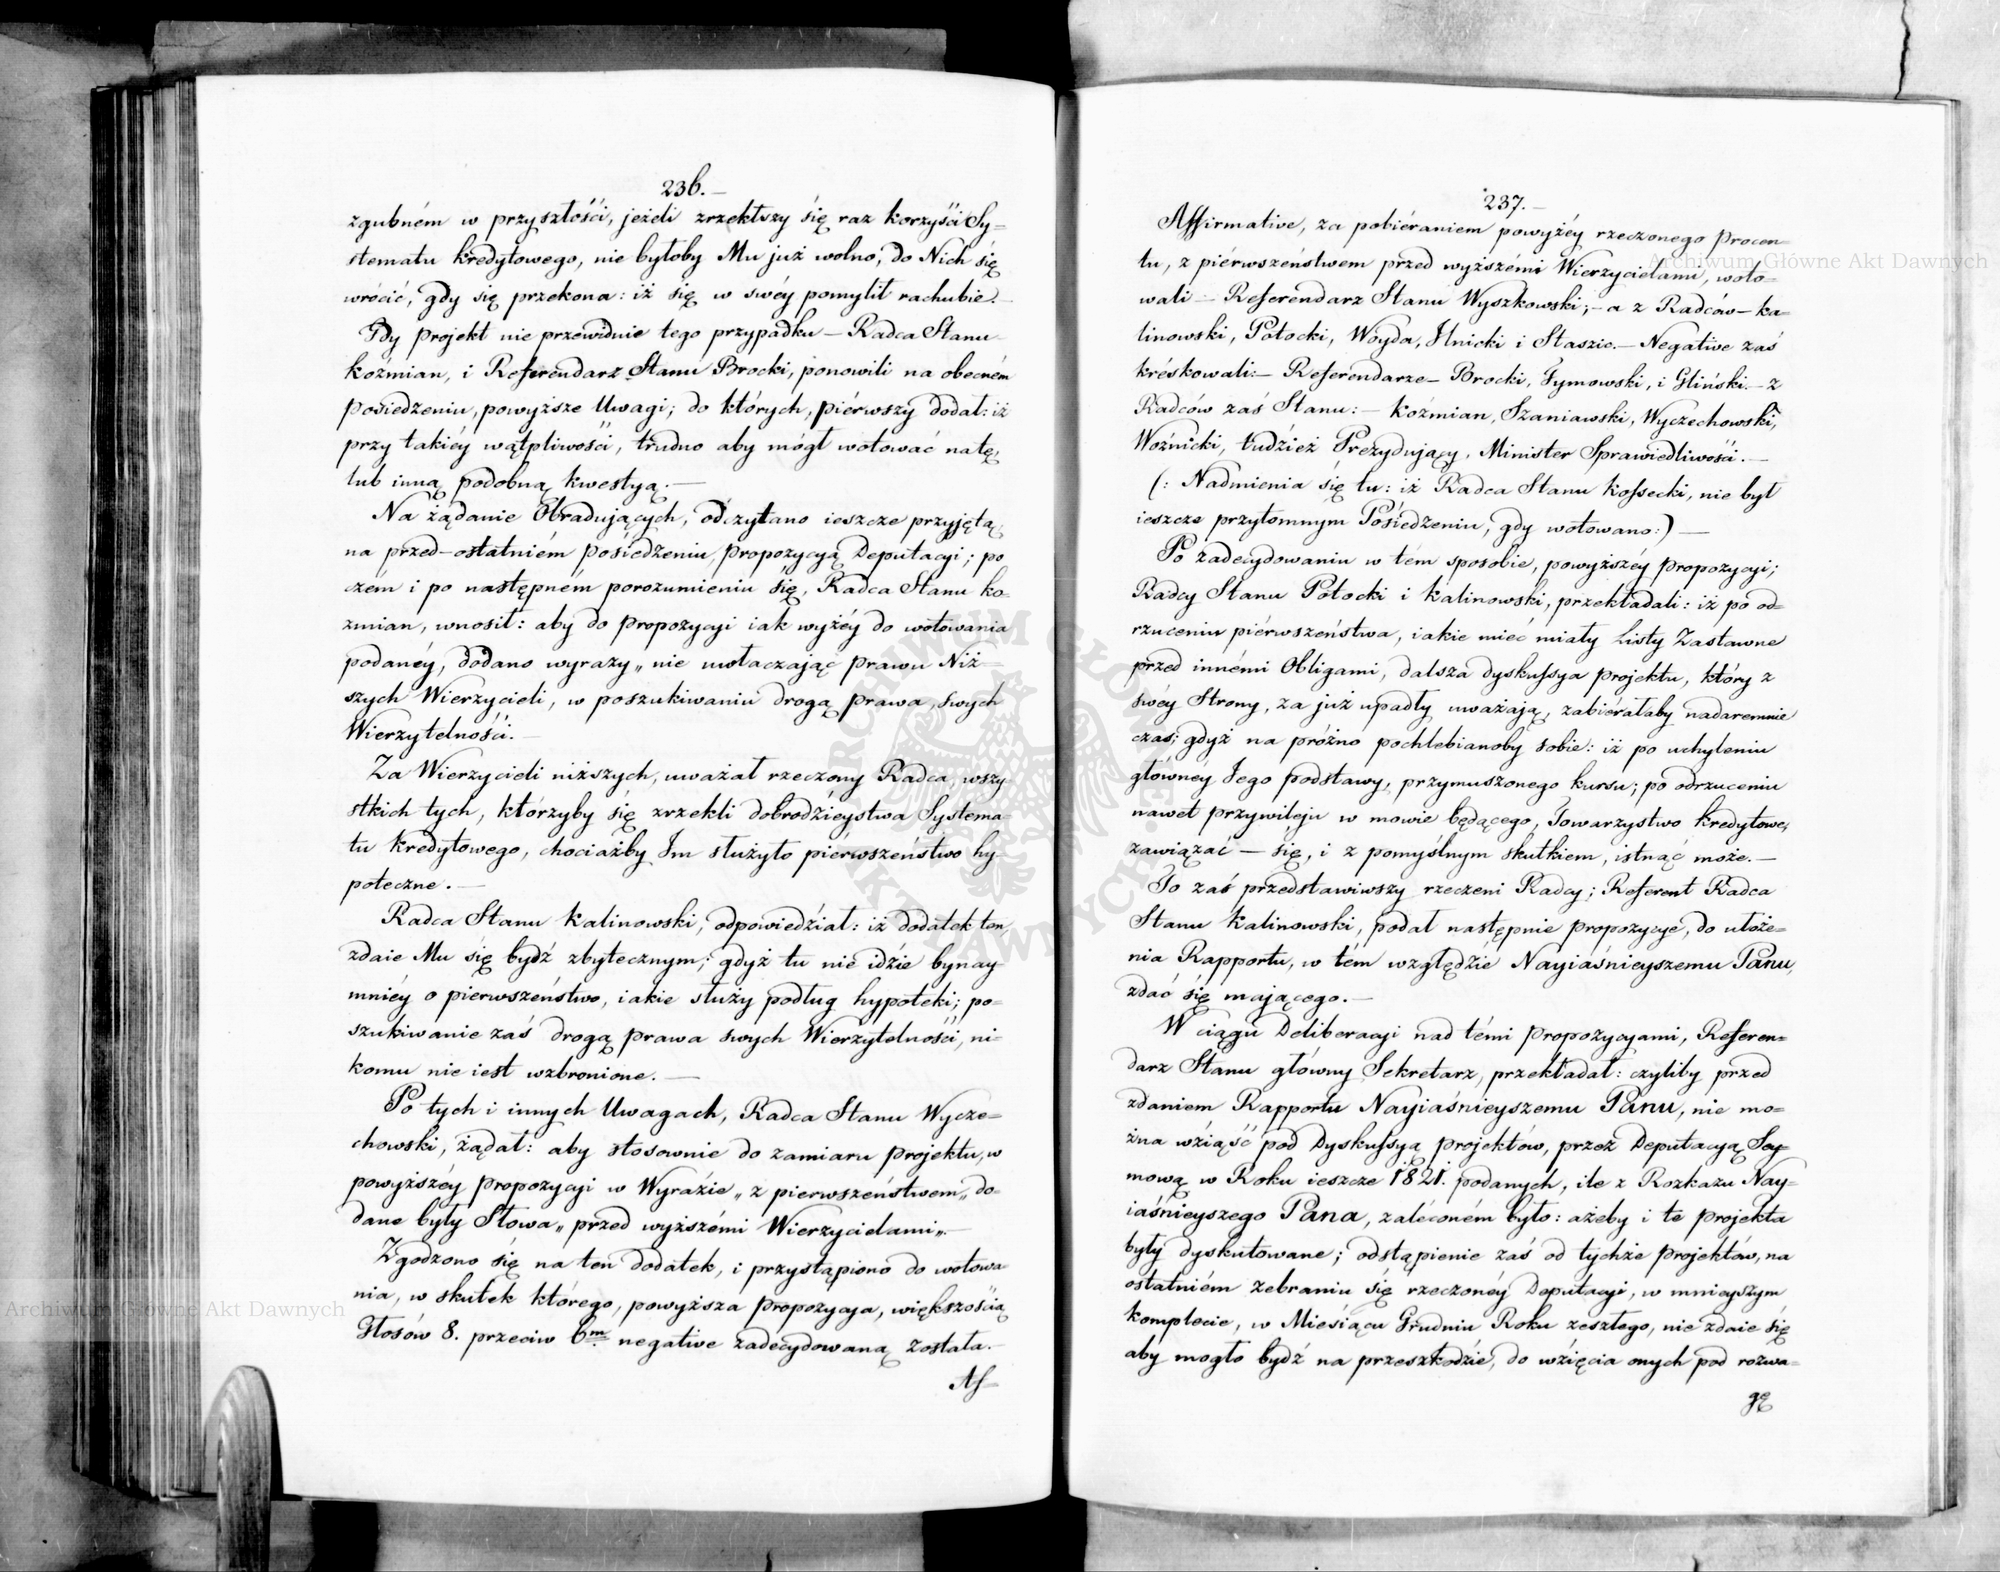 236.—
zgubném w przyszłości, jeżeli zrzekłszy się raz korzyści Sy=
stematu kredytowego, nie byłoby Mu już wolno, do Nich się
wrócić, gdy się przekona: iż się w swéy pomylił rachubie.—
Gdy projekt nie przewidnie tego przypadku — Radca Stanu
Koźmian, i Referendarz Stanu Brocki, ponowili na obecném
posiedzeniu, powyższe Uwagi; do których, piérwszy dodał: iż
przy takiéy wątpliwości, trudno aby mógł wotować natę,
lub inną podobną kwestyą.—
Na żądanie Obradujących, odczytano ieszcze przyjętą,
na przed-ostatniém posiedzeniu, propozycyą Deputacyi; po
czém i po następném porozumieniu się, Radca Stanu Ko=
zmian, wnosił: aby do propozycyi iak wyżéy do wotowania
podanéy, dodano wyrazy „ nie uwłaczając prawu Niż=
szych Wierzycieli, w poszukiwaniu drogą prawa, swych
Wierzytelności.—
Za Wierzycieli niższych, uważał rzeczony Radca, wszy
stkich tych, którzyby się zrzekli dobrodzieystwa Systema=
tu Kredytowego, chociażby Im służyło piérwszeństwo hy
poteczne.—
Radca Stanu Kalinowski, odpowiedział: iż dodatek ten,
zdaie Mu się bydź zbytecznym; gdyż tu nie idzie bynay
mniéy o pierwszeństwo, iakie służy podług hypoteki; po=
szukiwanie zaś drogą prawa swych Wierzytelności, ni=
komu nie iest wzbronione.—
Po tych i innych Uwagach, Radca Stanu Wycze=
chowski, żądał: aby stosownie do zamiaru projektu, w
powyższéy propozycyi w Wyrazie „ z pierwszeństwem „ do=
dane były Słowa „ przed wyższémi Wierzycielami „.—
Zgodzono się na ten dodatek, i przystąpiono do wotowa=
nia, w skutek którego, powyższa propozycya, większością
Głosów 8. przeciw 6m. negative zadecydowaną została.—
Af=
237.—
Affirmative, za pobiéraniem powyżéy rzeczonego Procen=
tu, z piérwszeństwem przed wyższémi Wierzycielami, woto=
wali — Referendarz Stanu Wyszkowski; — a z Radców — Ka=
linowski, Potocki, Woyda, Ilnicki i Staszic.— Negative zaś
kréskowali:— Referendarze — Brocki, Tymowski, i Gliński.— z
Radców zaś Stanu: — Koźmian, Szaniawski, Wyczechowski,
Woźnicki, tudzież Prezydujący, Minister Sprawiedliwości.—
(: Nadmienia się tu: iż Radca Stanu Kossecki, nie był
ieszcze przytomnym Posiedzeniu, gdy wotowano:) —
Po zadecydowaniu w tém sposobie, powyższéy propozycyi;
Radcy Stanu Potocki i Kalinowski, przekładali: iż po od=
rzuceniu piérwszeństwa, iakie mieć miały Listy Zastawne
przed innémi Obligami, dalsza dyskussya projektu, który z
swéy Strony, za już upadły uważają, zabiérałaby nadaremnie
czas; gdyż na próżno pochlebianoby sobie: iż po uchyleniu
głównéy Jego podstawy, przymuszonego kursu; po odrzuceniu
nawet przywileju w mowie będącego, Towarzystwo kredytowe,
zawiązać — się, i z pomyślnym skutkiem, istnąć może.—
To zaś przedstawiwszy rzeczeni Radcy; Referent Radca
Stanu Kalinowski, podał następnie propozycye, do ułoże=
nia Rapportu, w tém względzie Nayiaśnieyszemu Panu,
zdać się mającego.—
W ciągu Deliberacyi nad témi propozycyami, Referen=
darz Stanu główny Sekretarz, przekładał: czyliby przed
zdaniem Rapportu Nayiaśnieyszemu Panu, nie mo=
żna wziąść pod Dyskussyą projektów, przez Deputacyą Sey=
mową w Roku ieszcze 1821. podanych, ile z Rozkazu Nay=
iaśnieyszego Pana, zaleconém było: ażeby i te projekta
były dyskutowane; odstąpienie zaś od tychże projektów, na
ostatniém zebraniu się rzeczonéy Deputacyi, w mnieyszym
komplecie, w Miesiącu Grudniu Roku zeszłego, nie zdaie się
aby mogło bydź na przeszkodzie, do wzięcia onych pod rozwa=
gę
Archiwum Główne Akt Dawnych
Archiwum Główne Akt Dawnych
ARCHIWUM GŁÓWNE AKT DAWNYCH